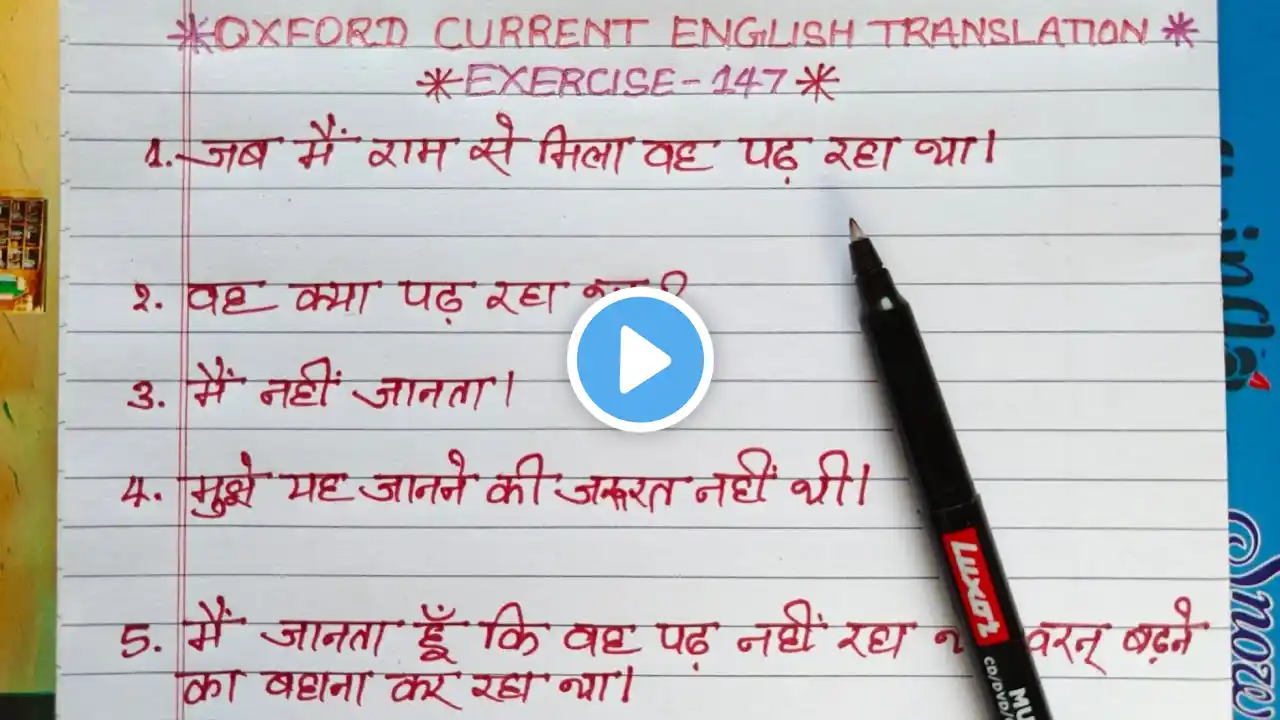 *OXFORD CURRENT ENGLISH TRANSLATION*
*EXERCISE-147*
1. जब मैं राम से मिला वह पढ़ रहा था।
2. वह क्या पढ़ रहा
3. मैं नहीं जानता।
4. मुझे यह जानने की जरूरत नहीं थी।
5. मैं जानता हूँ कि वह पढ़ नहीं रहा वरन् बढ़ने
का बहाना कर रहा था।
Luxor
CD/DVD/
MU
Snow